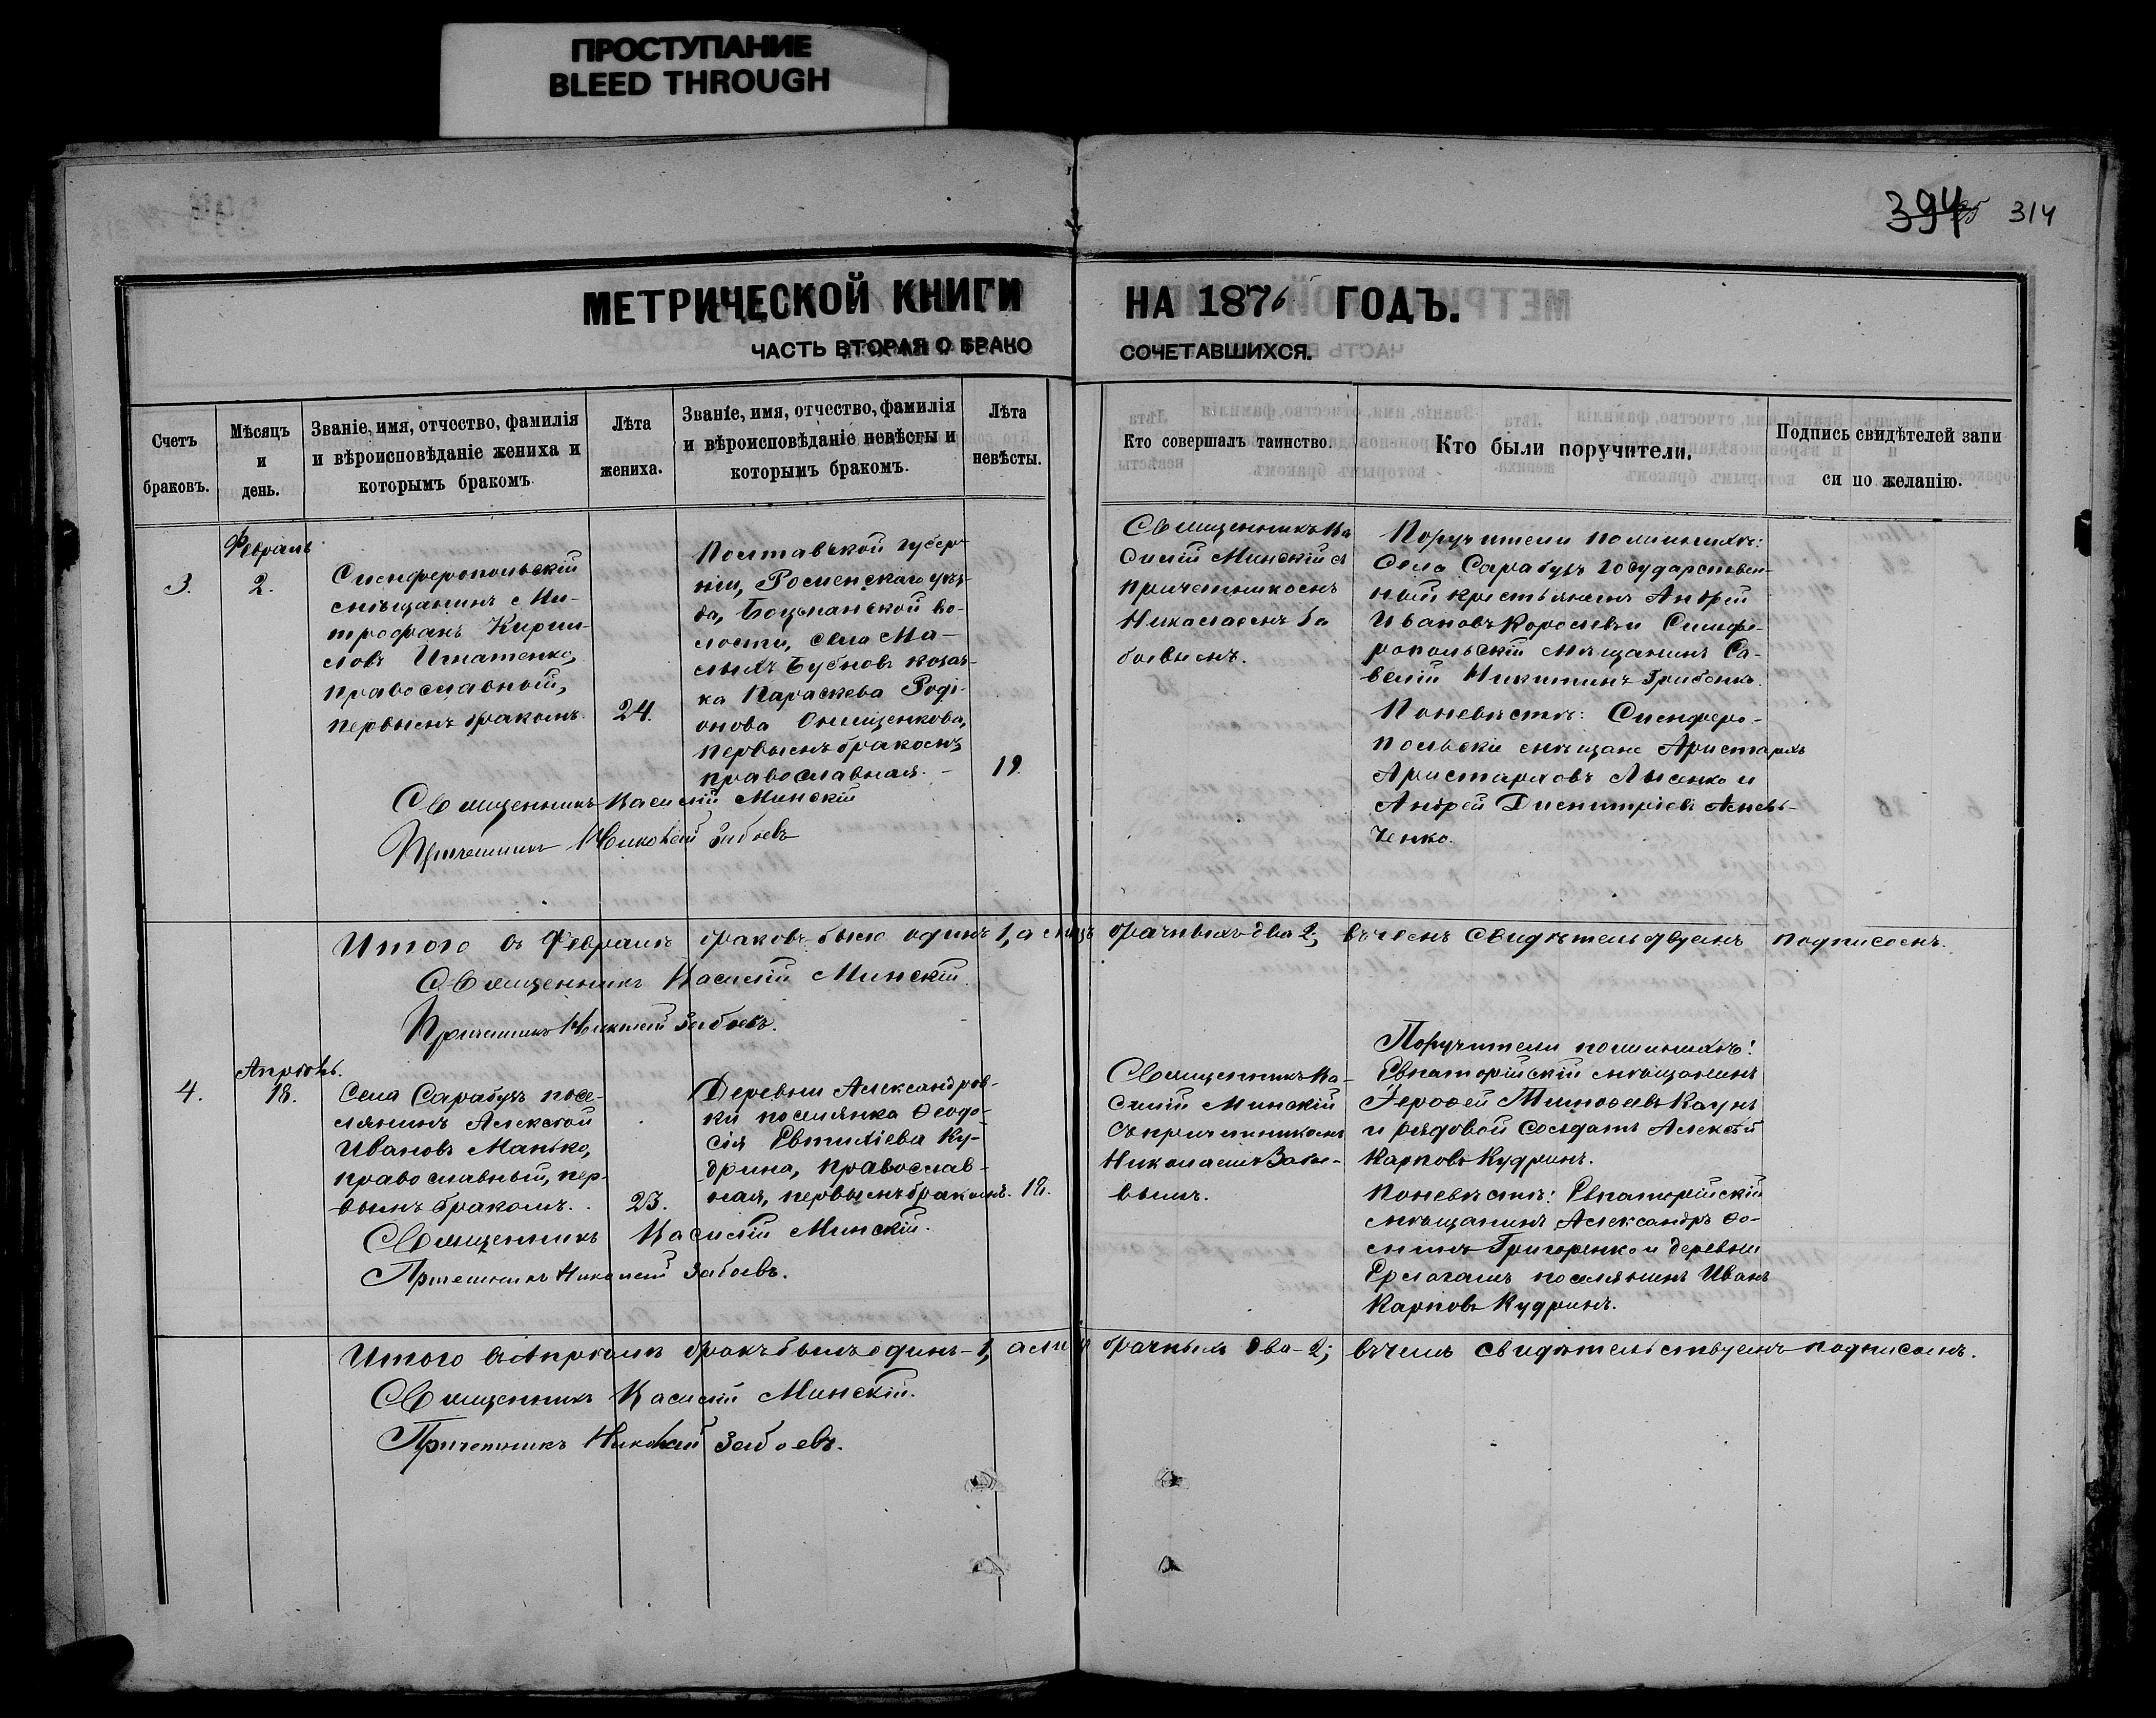 ПРОСТУПАНИЕ
BLEED THROUGH
394 314
МЕТРИЧЕСКОЙ КНИГИ НА 1876 ГОДЪ.
ЧАСТЬ ВТОРАЯ О БРАКО СОЧЕТАВШИХСЯ.
Счетъ
браковъ.
Мѣсяцъ
и
день.
Званіе, имя, отчество, фамилія
и вѣроисповѣданіе жениха и
которымъ бракомъ.
Лѣта
жениха.
Званіе, имя, отчество, фамилія
и вѣроисповѣданіе невѣсты и
которымъ бракомъ.
Лѣта
невѣсты.
Кто совершалъ таинство.
Кто были поручители.
Подпись свидѣтелей запи
си по желанію.
3.
Февраль
2.
Симферопольскій
мѣщанинъ Ми-
трофанъ Кирил-
ловъ Игнатенко,
православный,
первымъ бракомъ.
24.
Полтавской губер-
ніи, Роменскаго уѣз-
да, волости, села Ма-
лыхъ Бубновъ козач-
ка Параскева Роді-
онова Онищенкова,
первымъ бракомъ,
православная.
19.
Священникъ Ва
силій Минскій съ
причетникомъ
Николаемъ За
боевымъ.
Поручители по женихѣ:
Села Сарабузъ государствен-
ный крестьянинъ Андрей
Ивановъ Королевъ и Симфе-
ропольскій мѣщанинъ Са-
велій Никитинъ Грибенко.
По невѣстѣ: Симферо-
польскіе мѣщане Аристархъ
Аристарховъ Лысенко и
Андрей Димитріевъ
ченко.
Священникъ Василій Минскій
Причетникъ Николай Забоевъ
Итого въ Февралѣ браковъ было одинъ 1, а лицъ брачныхъ два 2; въ чемъ свидѣтельствуемъ подписомъ.
Священникъ Василій Минскій.
Причетникъ Николай Забоевъ.
4.
Апрѣль.
18.
Села Сарабузъ посе-
лянинъ Алексѣй
Ивановъ Манько,
православный, пер-
вымъ бракомъ.
23.
Деревни Александров-
ки поселянка Ѳеодо-
сія Евтихіева Ку-
дрина, православ-
ная, первымъ бракомъ.
18.
Священникъ Ва-
силій Минскій
съ причетникомъ
Николаемъ Забое-
вымъ.
Поручители по женихѣ:
Евпаторійскій мѣщанинъ
Іероѳей Тимоѳеевъ Каунъ
и рядовой солдатъ Алексѣй
Карповъ Кудринъ.
По невѣстѣ: Евпаторійскій
мѣщанинъ Александръ Ѳо-
минъ Григоренко и деревни
поселянинъ Иванъ
Карповъ Кудринъ.
Священникъ Василій Минскій.
Причетникъ Николай Забоевъ.
Итого въ Апрѣлѣ бракъ былъ одинъ - 1, а лицъ брачныхъ два - 2; въ чемъ свидѣтельствуемъ подписомъ.
Священникъ Василій Минскій.
Причетникъ Николай Забоевъ.